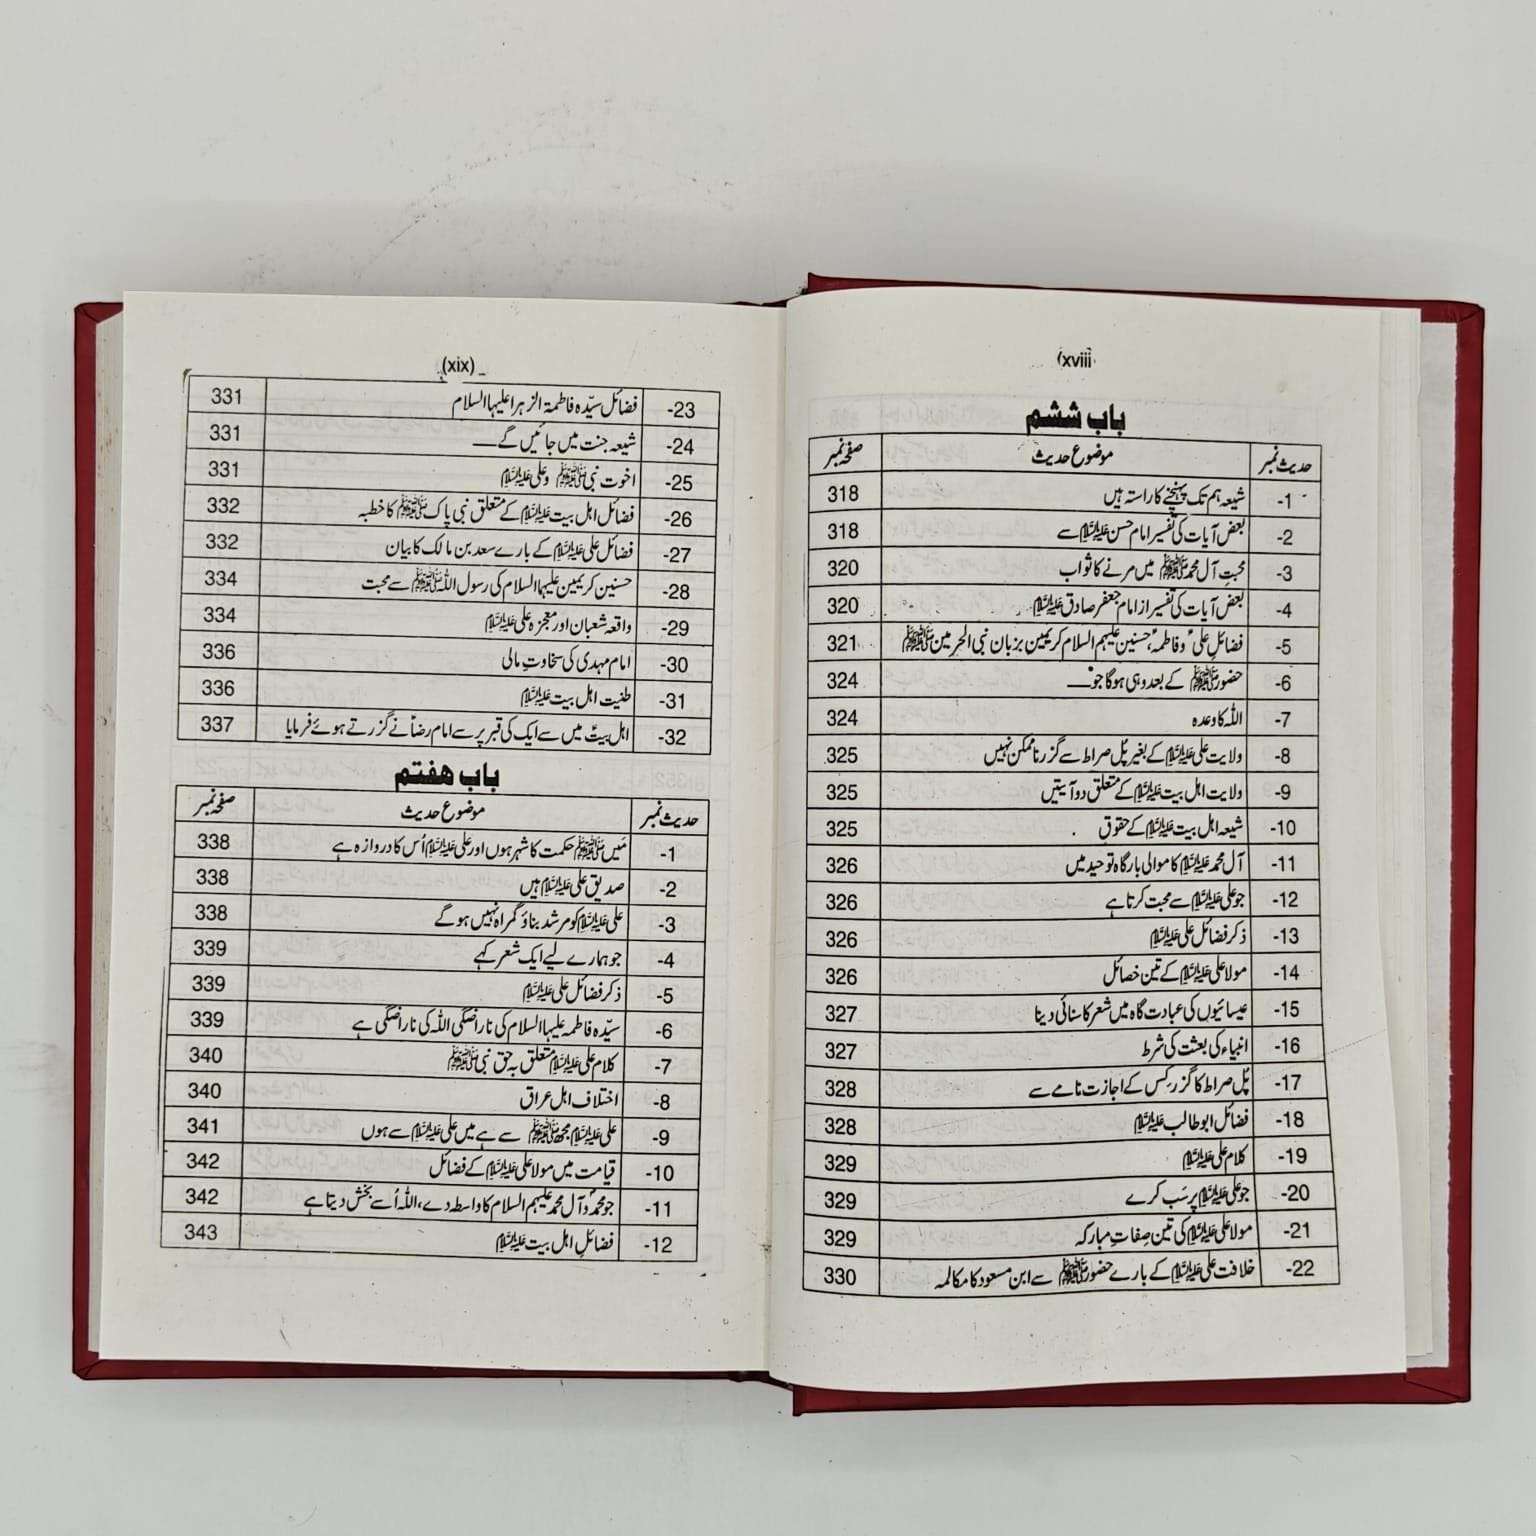 (xviii)
باب ششم
حدیث نمبر موضوع حدیث صفحہ نمبر
1- شیعہ ہم تک پہنچنے کا راستہ ہیں 318
2- بعض آیات کی تفسیر امام حسن علیہ السلام سے 318
3- محبتِ آل محمد ﷺ میں مرنے کا ثواب 320
4- بعض آیات کی تفسیر از امام جعفر صادق علیہ السلام 320
5- فضائلِ علیؑ و فاطمہؑ، حسنین علیہم السلام کریمین بزبان نبی الحرمین ﷺ 321
6- حضور ﷺ کے بعد وہی ہوگا جو۔۔۔ 324
7- اللہ کا وعدہ 324
8- ولایت علی علیہ السلام کے بغیر پُل صراط سے گزرنا ممکن نہیں 325
9- ولایت اہل بیت علیہ السلام کے متعلق دو آیتیں 325
10- شیعہ اہل بیت علیہ السلام کے حقوق 325
11- آل محمد علیہ السلام کا موالی بارگاہ توحید میں 326
12- جو علی علیہ السلام سے محبت کرتا ہے 326
13- ذکر فضائل علی علیہ السلام 326
14- مولا علی علیہ السلام کے تین خصائل 326
15- عیسائیوں کی عبادت گاہ میں شعر کا سنائی دینا 327
16- انبیاء کی بعثت کی شرط 327
17- پُل صراط کا گزر کس کے اجازت نامے سے 328
18- فضائل ابو طالب علیہ السلام 328
19- کلام علی علیہ السلام 329
20- جو علی علیہ السلام پر سَب کرے 329
21- مولا علی علیہ السلام کی تین صفاتِ مبارکہ 329
22- خلافت علی علیہ السلام کے بارے حضور ﷺ سے ابن مسعود کا مکالمہ 330
(xix)
23- فضائل سیّدہ فاطمۃ الزہرا علیہا السلام 331
24- شیعہ جنت میں جائیں گے۔۔۔ 331
25- اخوت نبی ﷺ و علی علیہ السلام 331
26- فضائل اہل بیت علیہ السلام کے متعلق نبی پاک ﷺ کا خطبہ 332
27- فضائل علی علیہ السلام کے بارے سعد بن مالک کا بیان 332
28- حسنین کریمین علیہا السلام کی رسول اللہ ﷺ سے محبت 334
29- واقعہ شعبان اور معجزہ علی علیہ السلام 334
30- امام مہدی کی سخاوتِ مالی 336
31- طنیت اہل بیت علیہ السلام 336
32- اہل بیتؑ میں سے ایک کی قبر پر سے امام رضاؑ نے گزرتے ہوئے فرمایا 337
باب ہفتم
حدیث نمبر موضوع حدیث صفحہ نمبر
1- مَیں ﷺ حکمت کا شہر ہوں اور علی علیہ السلام اُس کا دروازہ ہے 338
2- صدیق علی علیہ السلام ہیں 338
3- علی علیہ السلام کو مرشد بناؤ گمراہ نہیں ہوگے 338
4- جو ہمارے لیے ایک شعر کہے 339
5- ذکر فضائل علی علیہ السلام 339
6- سیّدہ فاطمہ علیہا السلام کی ناراضگی اللہ کی ناراضگی ہے 339
7- کلام علی علیہ السلام متعلق بہ حق نبی ﷺ 340
8- اختلاف اہل عراق 340
9- علی علیہ السلام مجھ ﷺ سے ہے میں علی علیہ السلام سے ہوں 341
10- قیامت میں مولا علی علیہ السلام کے فضائل 342
11- جو محمدؐ و آل محمد علیہم السلام کا واسطہ دے، اللہ اُسے بخش دیتا ہے 342
12- فضائلِ اہل بیت علیہ السلام 343